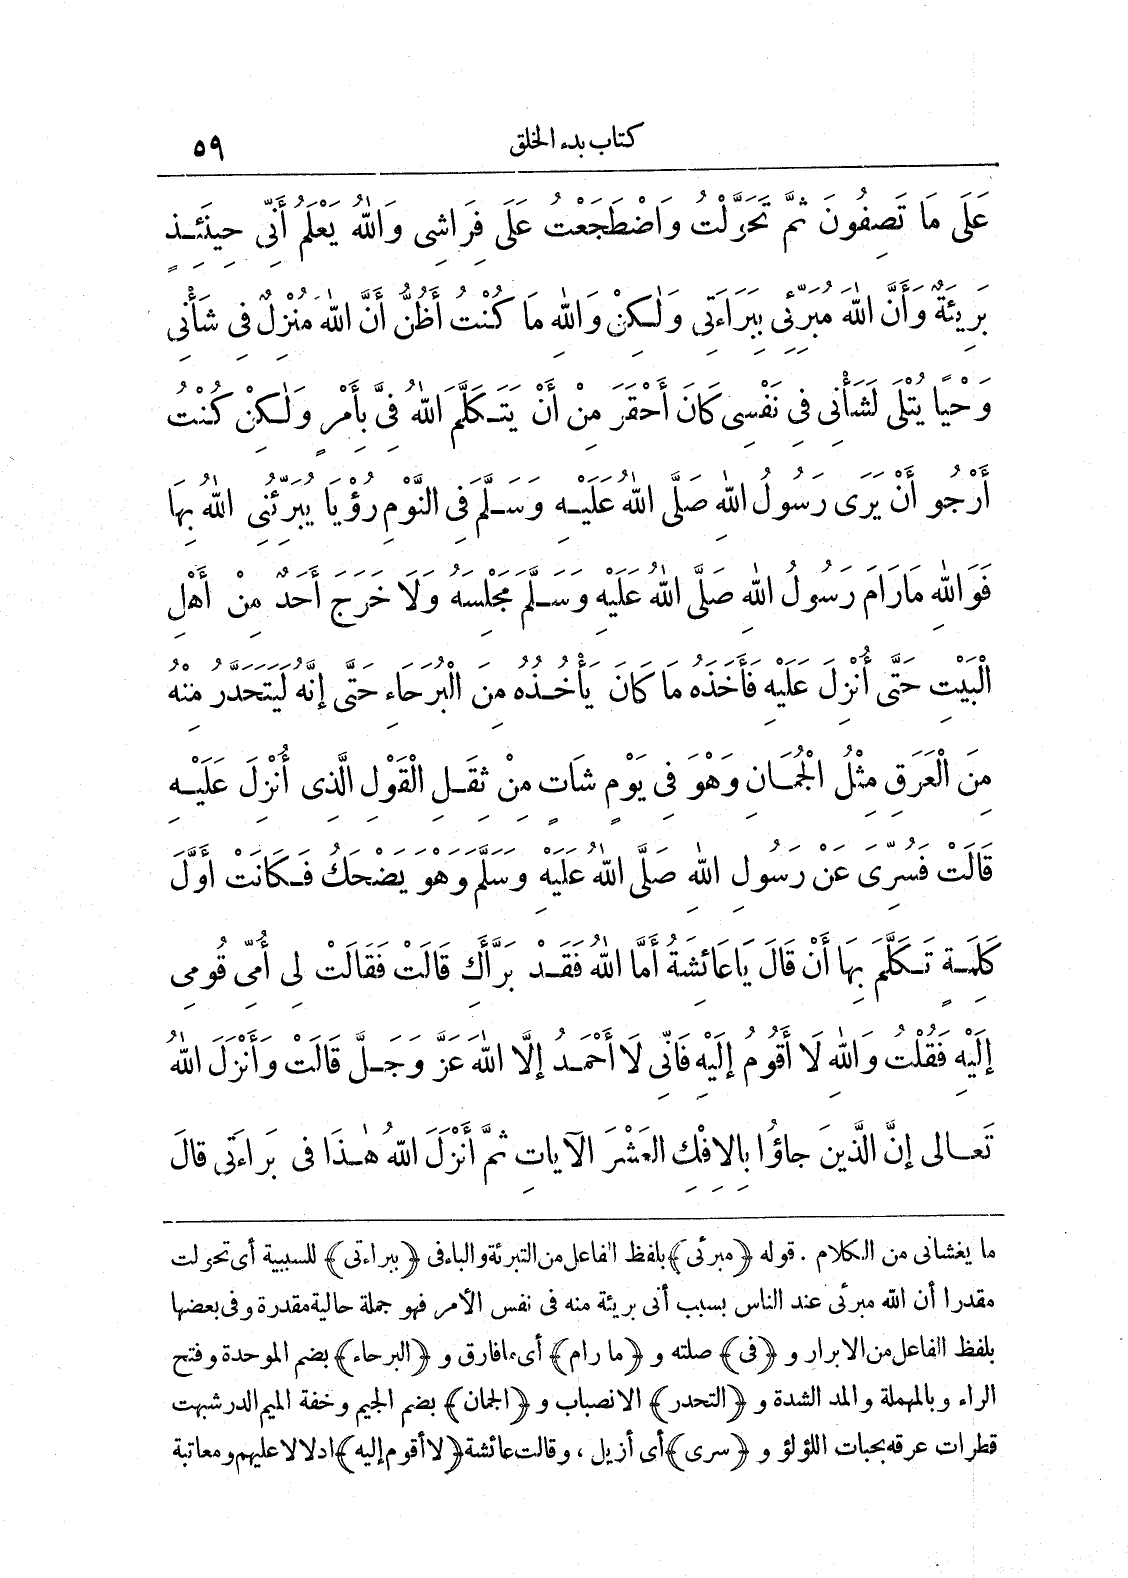 كتاب بدء الخلق ٥٩
عَلَى مَا تَصِفُونَ ثُمَّ تَحَوَّلْتُ وَاضْطَجَعْتُ عَلَى فِرَاشِى وَاللهُ يَعْلَمُ أَنِّى حِينَئِذٍ
بَرِيئَةٌ وَأَنَّ اللهَ مُبَرِّئِى بِبَرَاءَتِى وَلٰكِنْ وَاللهِ مَا كُنْتُ أَظُنُّ أَنَّ اللهَ مُنْزِلٌ فِى شَأْنِى
وَحْيًا يُتْلَى لَشَأْنِى فِى نَفْسِى كَانَ أَحْقَرَ مِنْ أَنْ يَتَكَلَّمَ اللهُ فِىَّ بِأَمْرٍ وَلٰكِنْ كُنْتُ
أَرْجُو أَنْ يَرَى رَسُولُ اللهِ صَلَّى اللهُ عَلَيْهِ وَسَلَّمَ فِى النَّوْمِ رُؤْيَا يُبَرِّئُنِى اللهُ بِهَا
فَوَاللهِ مَارَامَ رَسُولُ اللهِ صَلَّى اللهُ عَلَيْهِ وَسَلَّمَ مَجْلِسَهُ وَلَا خَرَجَ أَحَدٌ مِنْ أَهْلِ
الْبَيْتِ حَتَّى أُنْزِلَ عَلَيْهِ فَأَخَذَهُ مَا كَانَ يَأْخُذُهُ مِنَ الْبُرَحَاءِ حَتَّى إِنَّهُ لَيَتَحَدَّرُ مِنْهُ
مِنَ الْعَرَقِ مِثْلُ الْجُمَانِ وَهْوَ فِى يَوْمٍ شَاتٍ مِنْ ثِقَلِ الْقَوْلِ الَّذِى أُنْزِلَ عَلَيْهِ
قَالَتْ فَسُرِّىَ عَنْ رَسُولِ اللهِ صَلَّى اللهُ عَلَيْهِ وَسَلَّمَ وَهْوَ يَضْحَكُ فَكَانَتْ أَوَّلَ
كَلِمَةٍ تَكَلَّمَ بِهَا أَنْ قَالَ يَاعَائِشَةُ أَمَّا اللهُ فَقَدْ بَرَّأَكِ قَالَتْ فَقَالَتْ لِى أُمِّى قُومِى
إِلَيْهِ فَقُلْتُ وَاللهِ لَا أَقُومُ إِلَيْهِ فَانِّى لَا أَحْمَدُ إِلَّا اللهَ عَزَّ وَجَلَّ قَالَتْ وَأَنْزَلَ اللهُ
تَعَالى إِنَّ الَّذِينَ جاؤُا بِالِافْكِ العَشْرَ الآيَاتِ ثُمَّ أَنْزَلَ اللهُ هٰذَا فى بَرَاءَتِى قالَ
ما يغشانى من الكلام . قوله ﴿مبرئى﴾ بلفظ الفاعل من التبرئة والباء فى ﴿ببراءتى﴾ للسببية أى تحولت
مقدرا أن الله مبرئى عند الناس بسبب أنى بريئة منه فى نفس الأمر فهو جملة حالية مقدرة وفى بعضها
بلفظ الفاعل من الابرار و ﴿فى﴾ صلته و ﴿ما رام﴾ أى مافارق و ﴿البرحاء﴾ بضم الموحدة وفتح
الراء وبالمهملة والمد الشدة و ﴿التحدر﴾ الانصباب و ﴿الجمان﴾ بضم الجيم وخفة الميم الدر شبهت
قطرات عرقه بحبات اللؤلؤ و ﴿سرى﴾ أى أزيل ، وقالت عائشة ﴿لا أقوم إليه﴾ ادلالا عليهم ومعاتبة